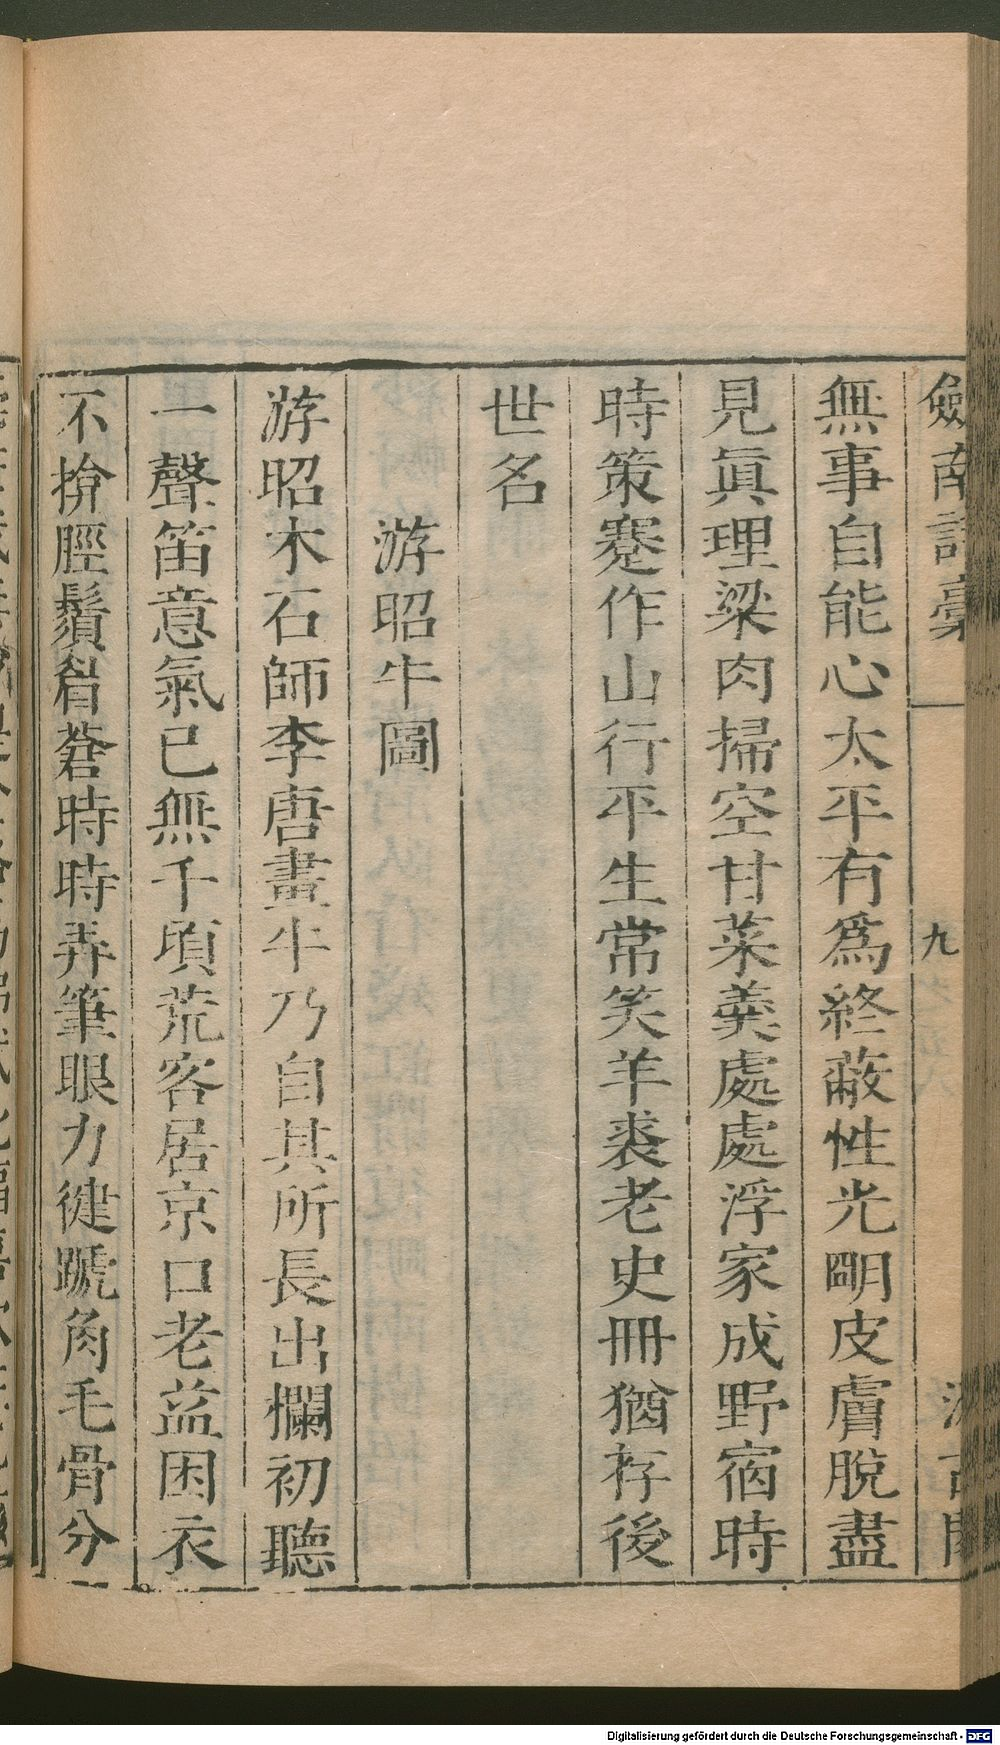 劍南詩稾 九
無事自能心太平有爲終蔽性光朙皮膚脫盡
見眞理粱肉掃空甘菜羹處處浮家成野宿時
時策蹇作山行平生常笑羊裘老史冊猶存後
世名
游昭牛圖
游昭木石師李唐畫牛乃自其所長出欄初聽
一聲笛意氣已無千頃荒客居京口老益困衣
不揜脛鬚眉蒼時時弄筆眼力健蹏角毛骨分
Digitalisierung gefördert durch die Deutsche Forschungsgemeinschaft - DFG